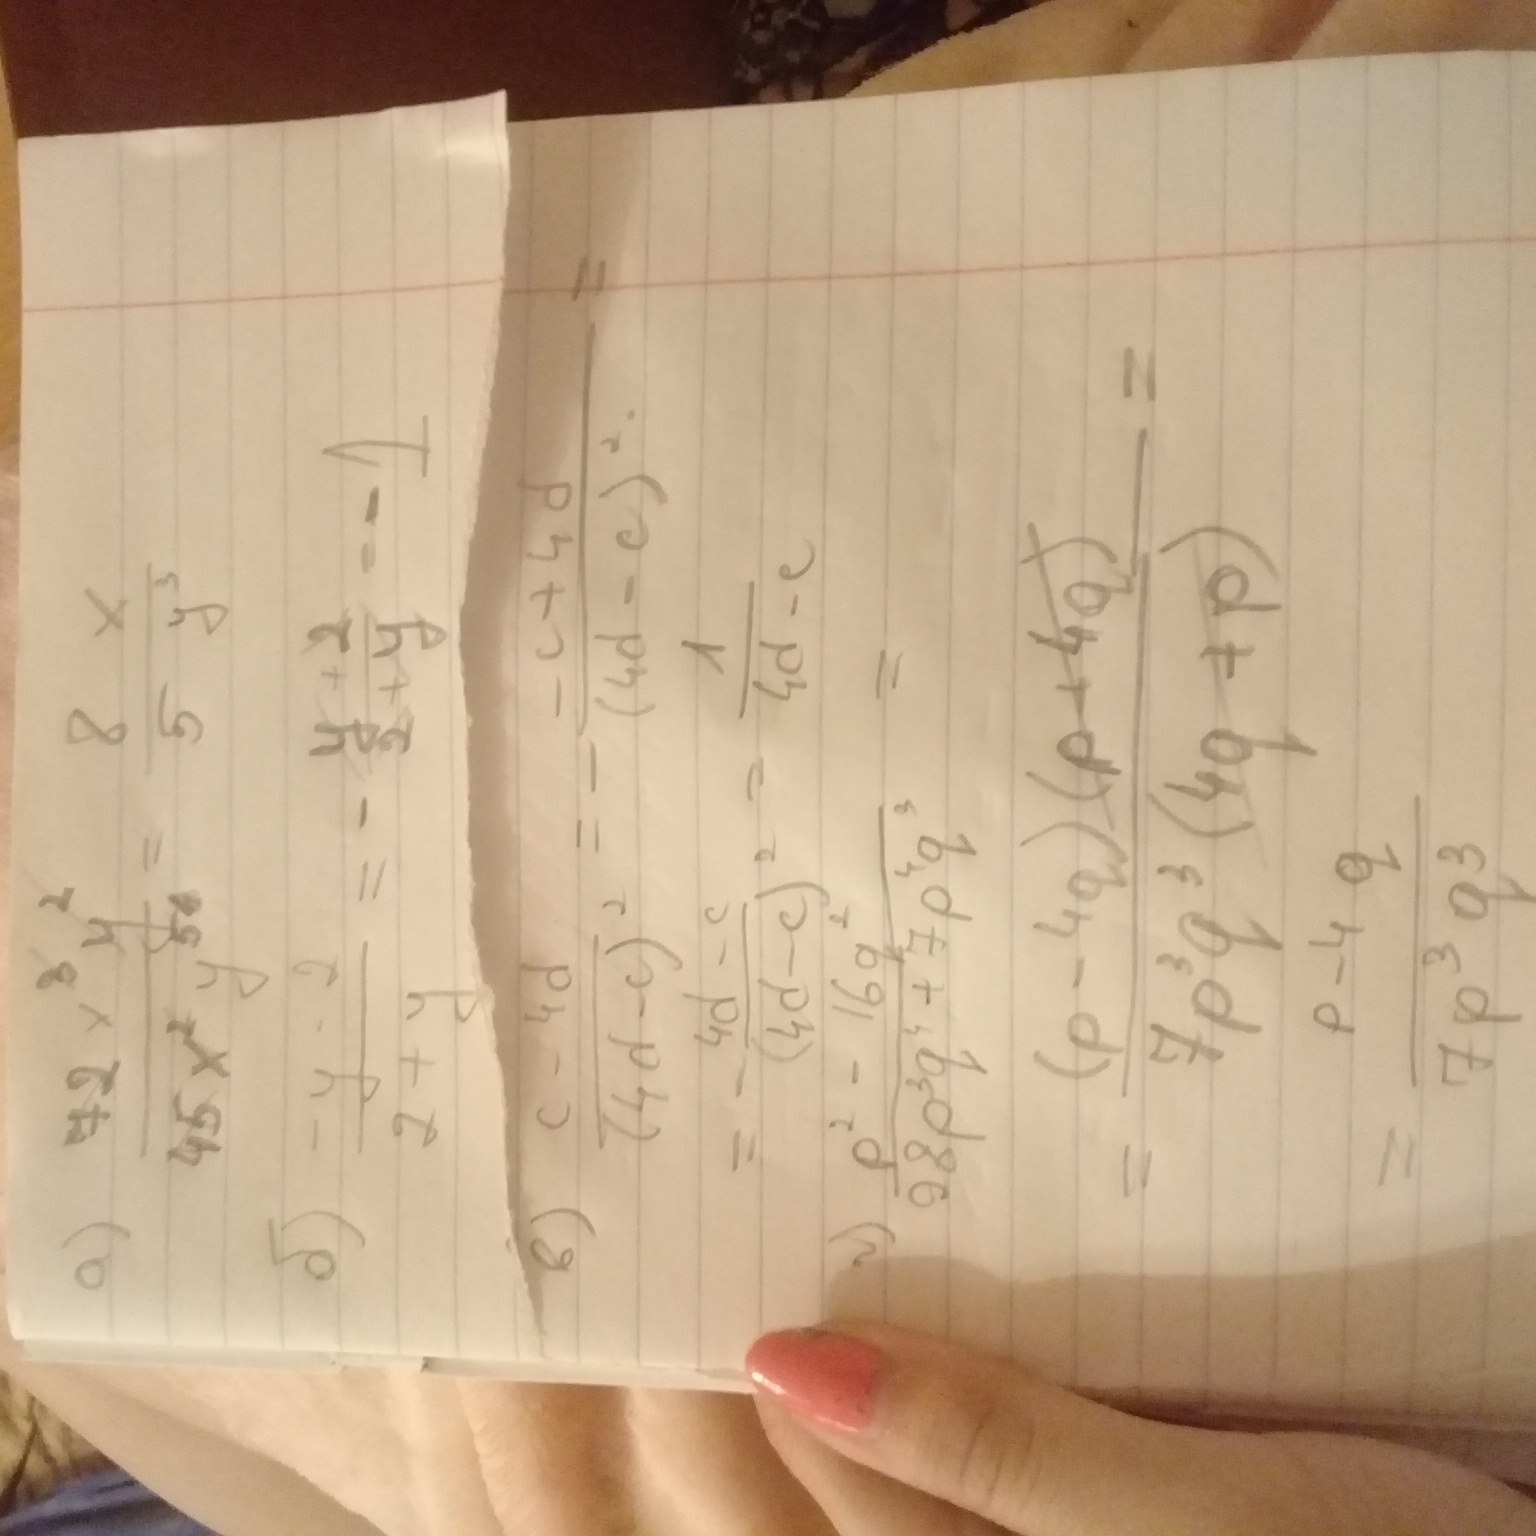 а) 72x³y² / 45x²y⁵ = 8x / 5y³
б) -y-2 / 2+y = - y+2 / 2+y = -1
в) c-4d / (4d-c)² = - -c+4d / (4d-c)² =
= - 4d-c / (4d-c)² = 1 / 4d-c
г) p²-16q² / 28p³q⁴+7p⁴q³ =
= (p-4q)(p+4q) / 7p³q³(4q+p) =
= p-4q / 7p³q³